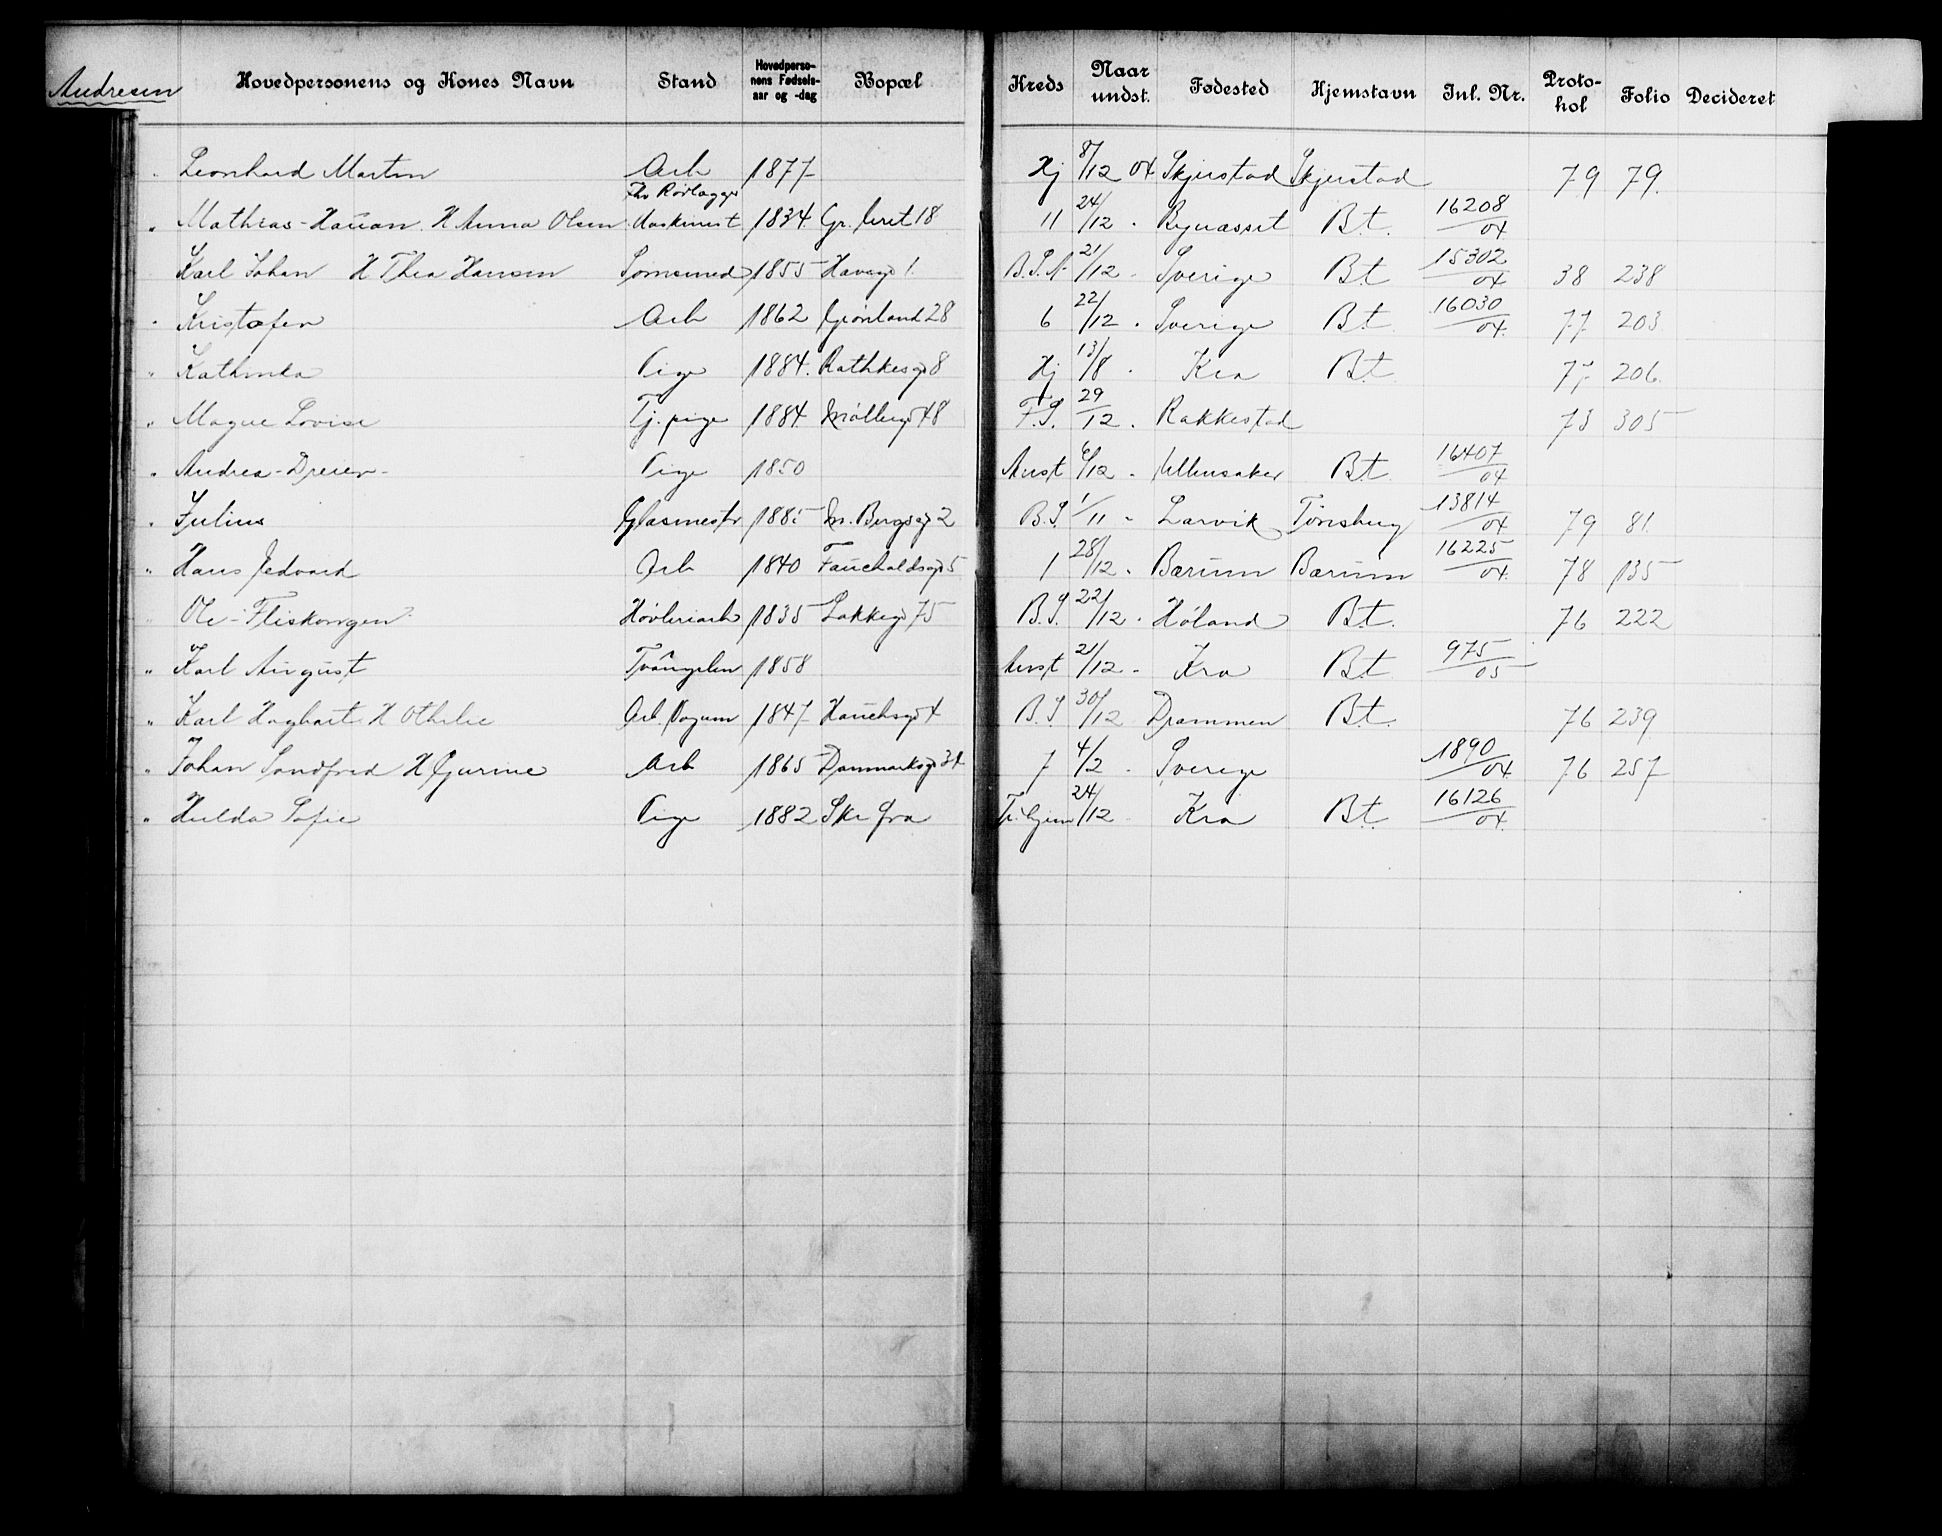 Andresen
Hovedpersonens og Kones Navn Stand Hovedperso-nens Fødsels-aar og -dag Bopæl Kreds Naar undst. Fødested Hjemstavn Jnl. Nr. Proto-kol Folio Decideret
" Leonhard Martin Arb 1877 Hj 8/12 04 Skjerstad Skjerstad 79 79.
" Mathias-Hauan. H Anna Olsen fhv Rørlægger Maskinist 1834. Gr. leret 18 11 24/12 . Bynæsset B.t. 16208/04
Karl Johan H Thea Hansen 1855 Haveg 1. B.S.N. 21/12 - Sverige B.t 15302/04 38 238
" Kristofer Arb 1862 Grønland 28 6 22/12 . Sverige B.t 16030/04. 77 203
" Kathinka Pige 1884. Rathkesg 8 Hj 13/8 . Kra B.t 77 206
" Magne Lovise Tj. pige 1884 Møllerg 48 F.S. 29/12 . Rakkestad 73 305
" Andrea-Dreier- Pige 1850 Anst 6/12 - Ullensaker B.t 16407/04
" Julius Glasmestr 188 m. Bergsg 2 B.S. 1/11 - Larvik Tønsberg 13814/04 79 81.
" Hans Jedvard Arb 1840 Fauchaldsg 5 1 28/12 . Bærum Bærum 16225/04. 78 135
" Ole-Fliskongen Høvleriarb 1835 Lakkeg 75 B.S. 22/12 . Høland B.t. 76 222
" Karl August Tvangsln 1858 Anst 21/12 - Kra B.t 975/05
" Karl Hagbart H Othilie Arb. 1847 Hauchsg 4 B.S 30/12 Drammen B.t. 76 239
" Johan Sandfred H Gurine Arb 1865 Danmarksg 34 7 4/2 . Sverige 1890/04 76 257
" Hulda Sofie Pige 1882 Ske fra Tr. hjem 24/12 Kra B.t. 16126/04.